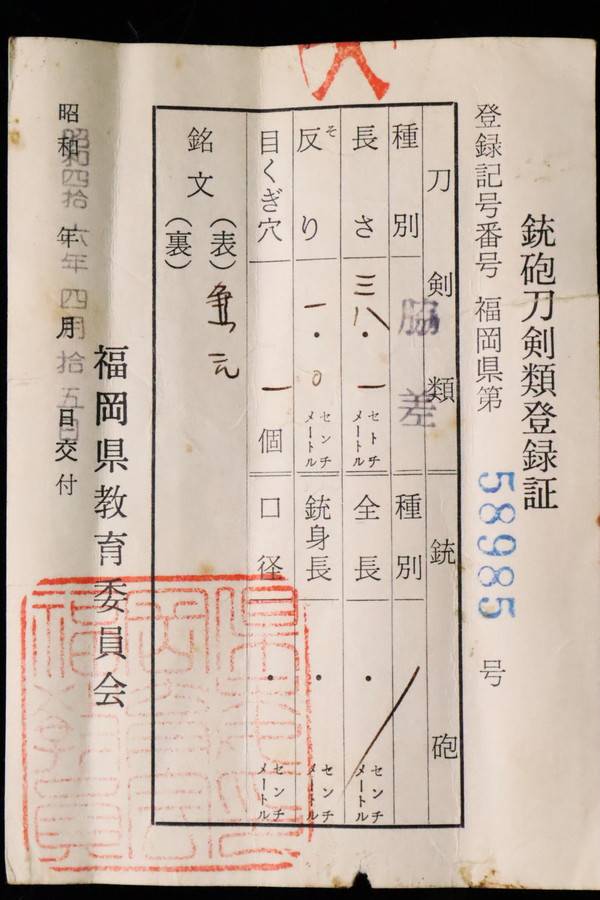 銃砲刀剣類登録証
登録記号番号 福岡県第 58985 号
刀剣類 銃砲
種別 脇差 種別
長さ 三八・一 センチメートル 全長 ・ センチメートル
反り そ 一・〇 センチメートル 銃身長 ・ センチメートル
目くぎ穴 一 個 口径 ・ センチメートル
銘文 (表) 無銘
(裏)
福岡県教育委員会
昭和 年 月 日交付
昭和四拾六年四月拾五日